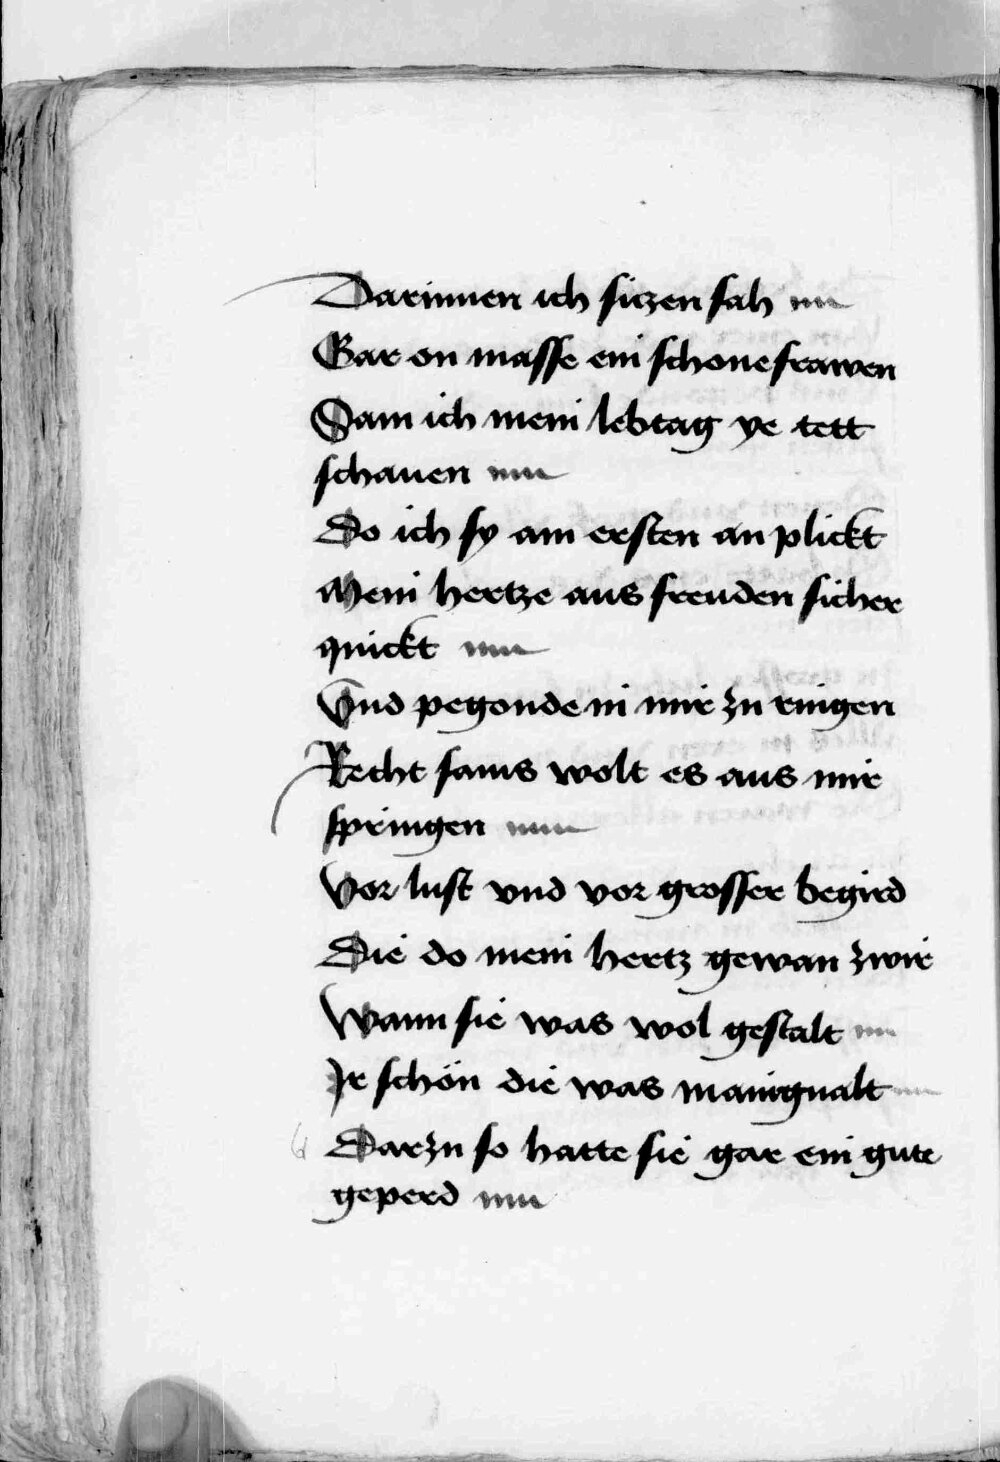 Darinnen ich siczen sah
Gar on masse ein schone frawen
Sam ich mein lebtag ye tett
schauen
Do ich sy am ersten an plickt
Mein hertze aus freuden sicher
quickt
Vnd pegonde in mir zu ringen
Recht sams wolt es aus mir
springen
Vor lust vnd vor grosser begird
Die do mein hertz gewan zwir
Wann sie was wol gestalt
Ir schön die was manigualt
Darzu so hatte sie gar ein gute
geperd